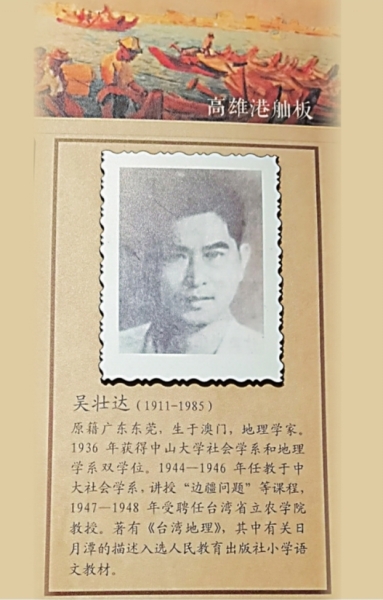 高雄港舢板
吴壮达(1911-1985)
原籍广东东莞,生于澳门,地理学家。
1936 年获得中山大学社会学系和地理
学系双学位。1944—1946 年任教于中
大社会学系,讲授“边疆问题”等课程,
1947—1948 年受聘任台湾省立农学院
教授。著有《台湾地理》,其中有关日
月潭的描述入选人民教育出版社小学语
文教材。